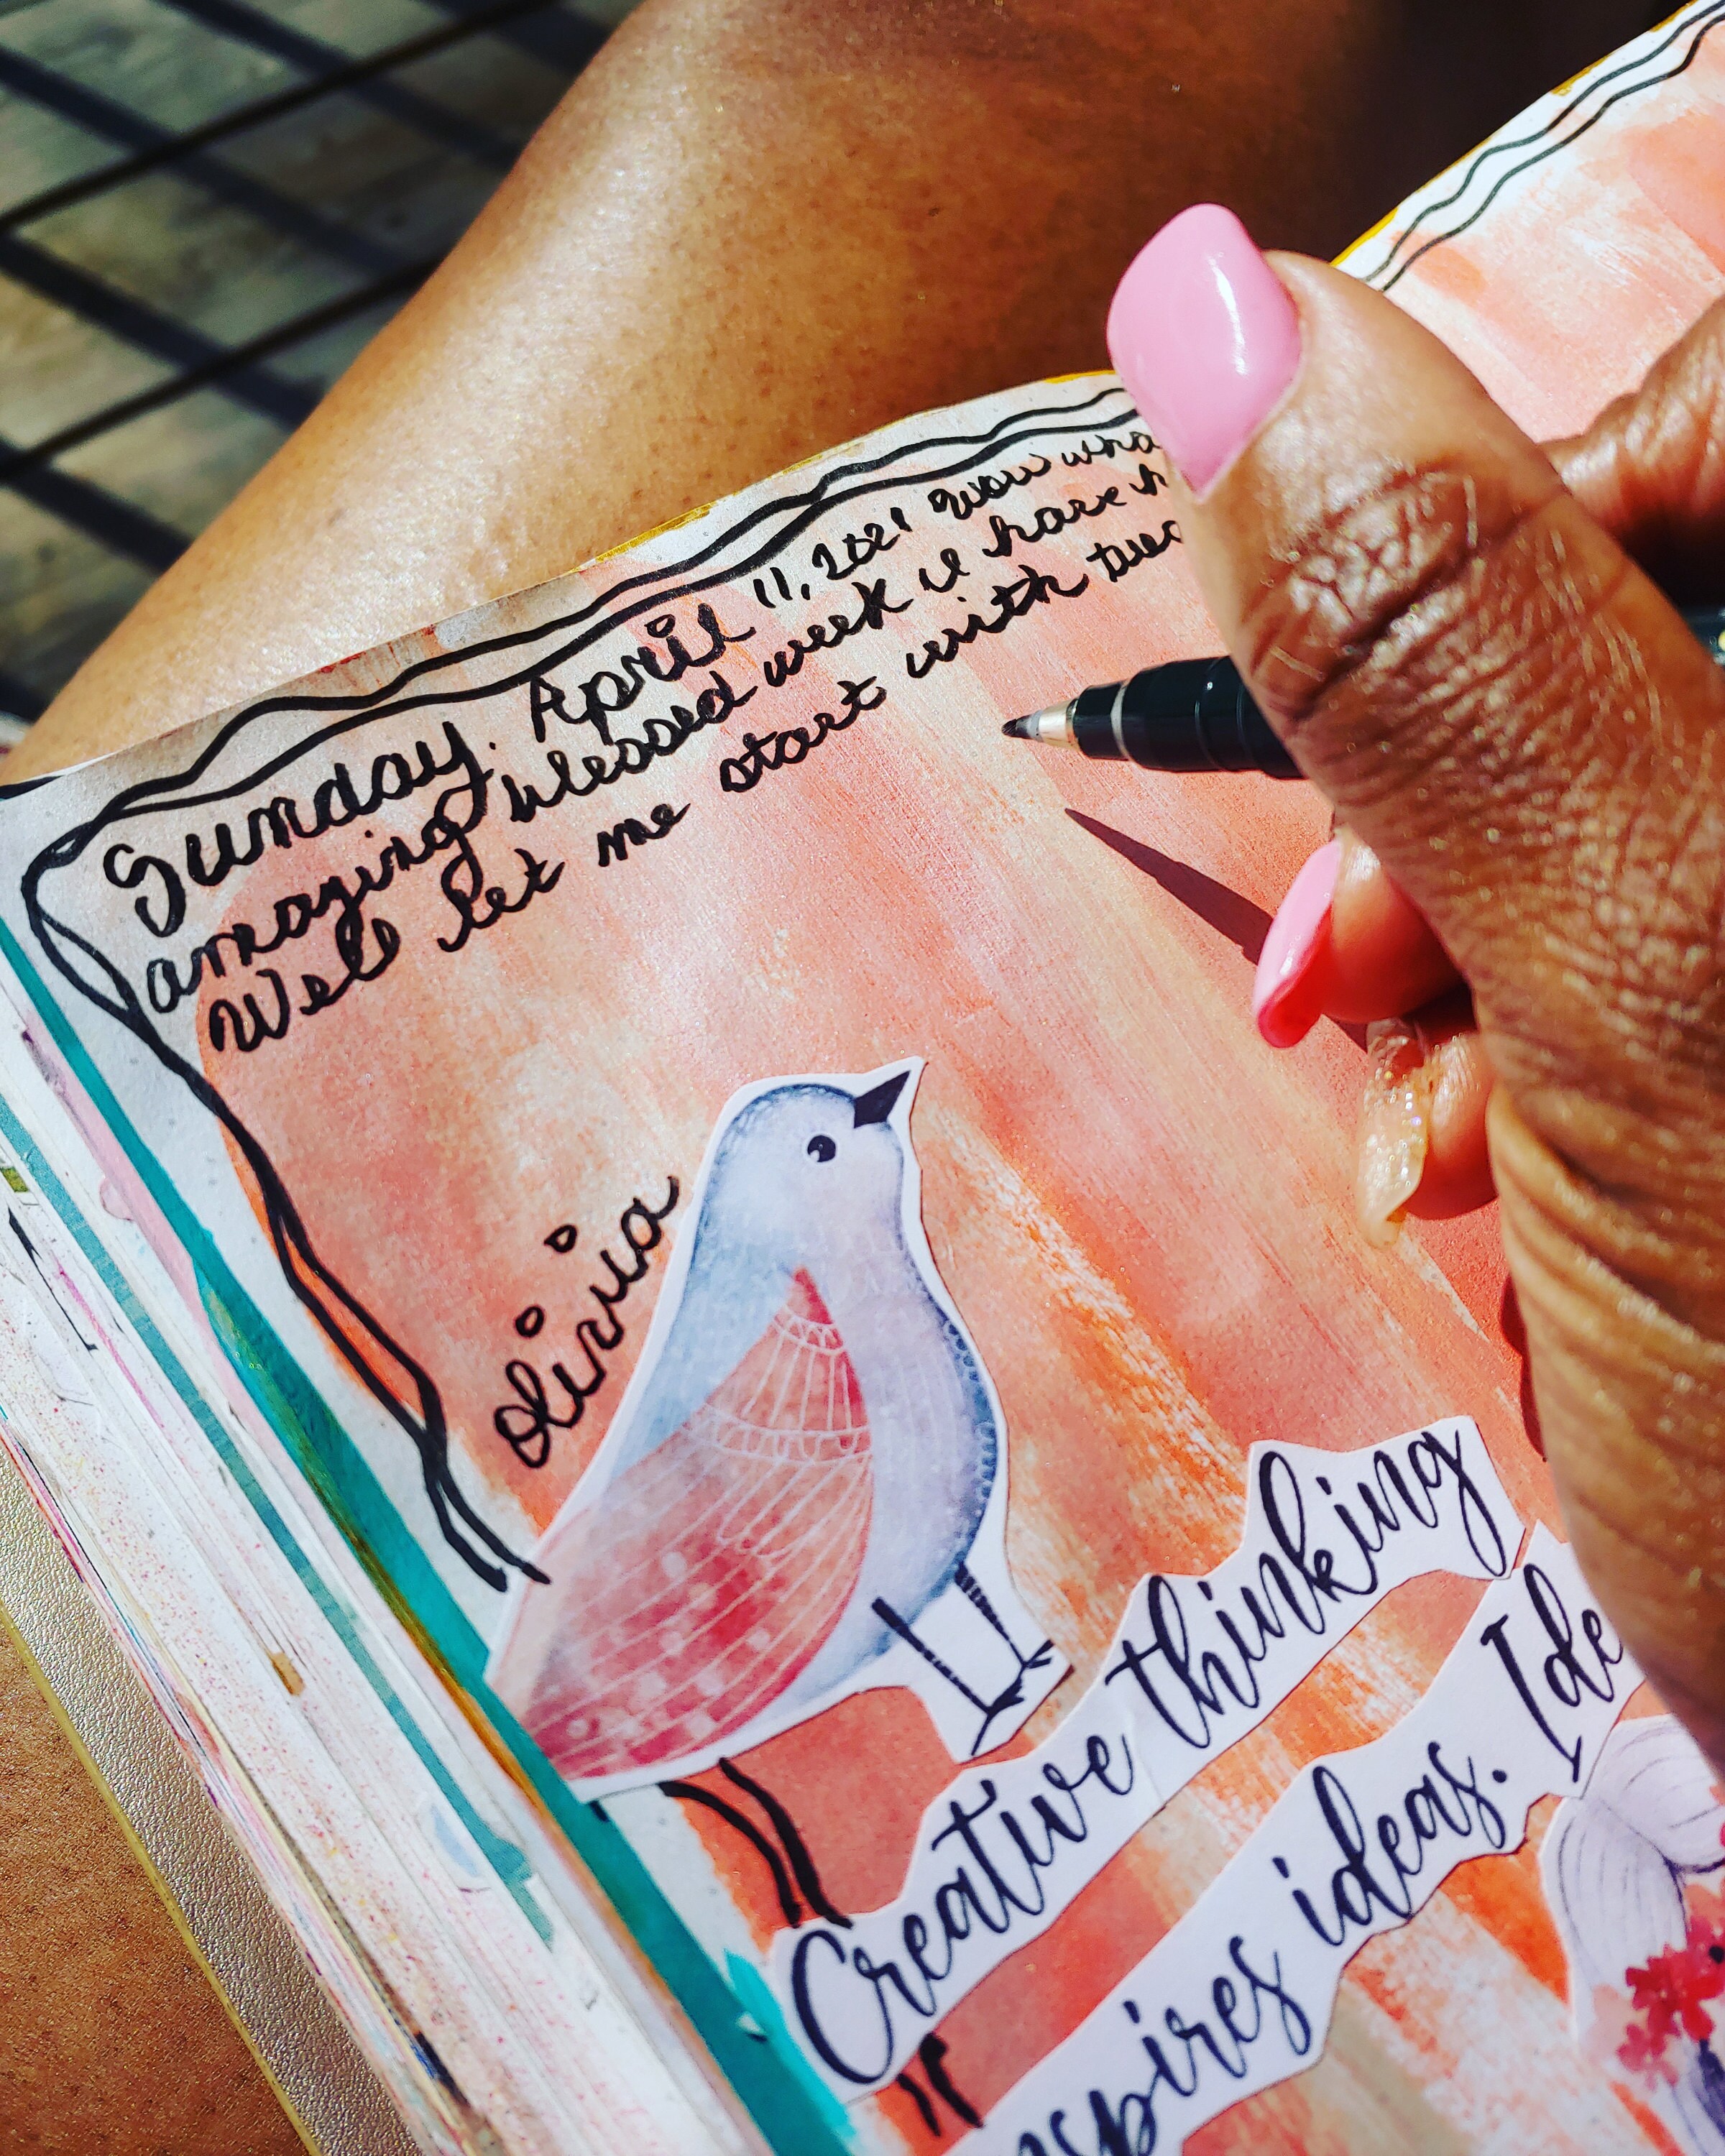 Sunday. April 11, 2021 wow
amazing blessed week I have
Well let me start with
olivia
Creative thinking
inspires ideas.